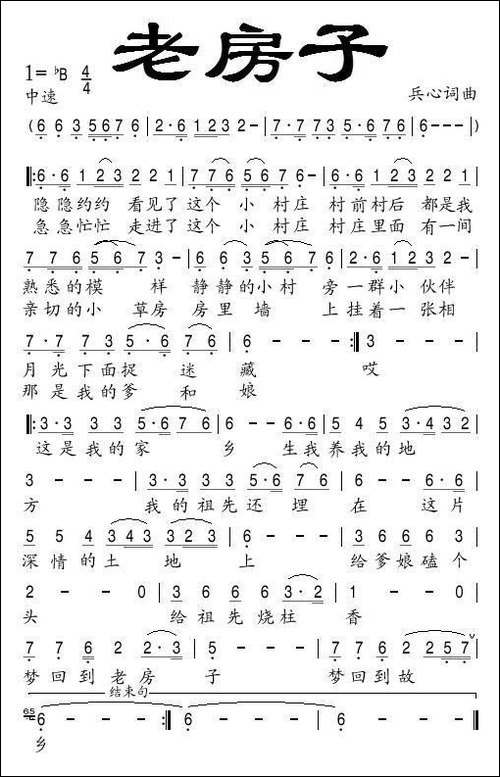 老房子
1= ♭B 4/4
中速
兵心词曲
( 6 6 3 5 6 7 6 | 2·6 1 2 3 2 – | 7·7 7 3 5·6 7 6 | 6 – – – )
‖: 6·6 1 2 3 2 2 1 | 7 7 6 7 6 5 6 7 | 6·6
隐隐约约 看见了 这个 小 村庄 村前村后 都是我
急急忙忙 走进了 这个 小 村庄 村庄里面 有一间
熟悉的模 样 静静的小村 旁一群小 伙伴
亲切的小 草房 房里 墙 上挂着一 张相
7·7 7 3 5·6 7 6 | 6 – – :‖ 3 – –
月光下面捉 迷 藏 哎
那是我的爹 和 娘
‖: 3·3 3 3 5·6 7 6 | 6 – – 6·6 | 5 4 5 3·4 3 2
这是我的家 乡 生我养我的地
方 我的祖先还埋 在 这片
5 5 4 3 4 3 3 2 3 | 6 –
深情的土 地 上 给爹娘磕个
2 – – 0 | 3 6 6 6 3·2 | 1 – – 0
头 给祖先烧柱 香
7 7 6 2 2·3 | 5 – –
梦回到老房 子 梦回到故
结束句
6 – – :‖ 6 – – – | 6 – – ‖
乡